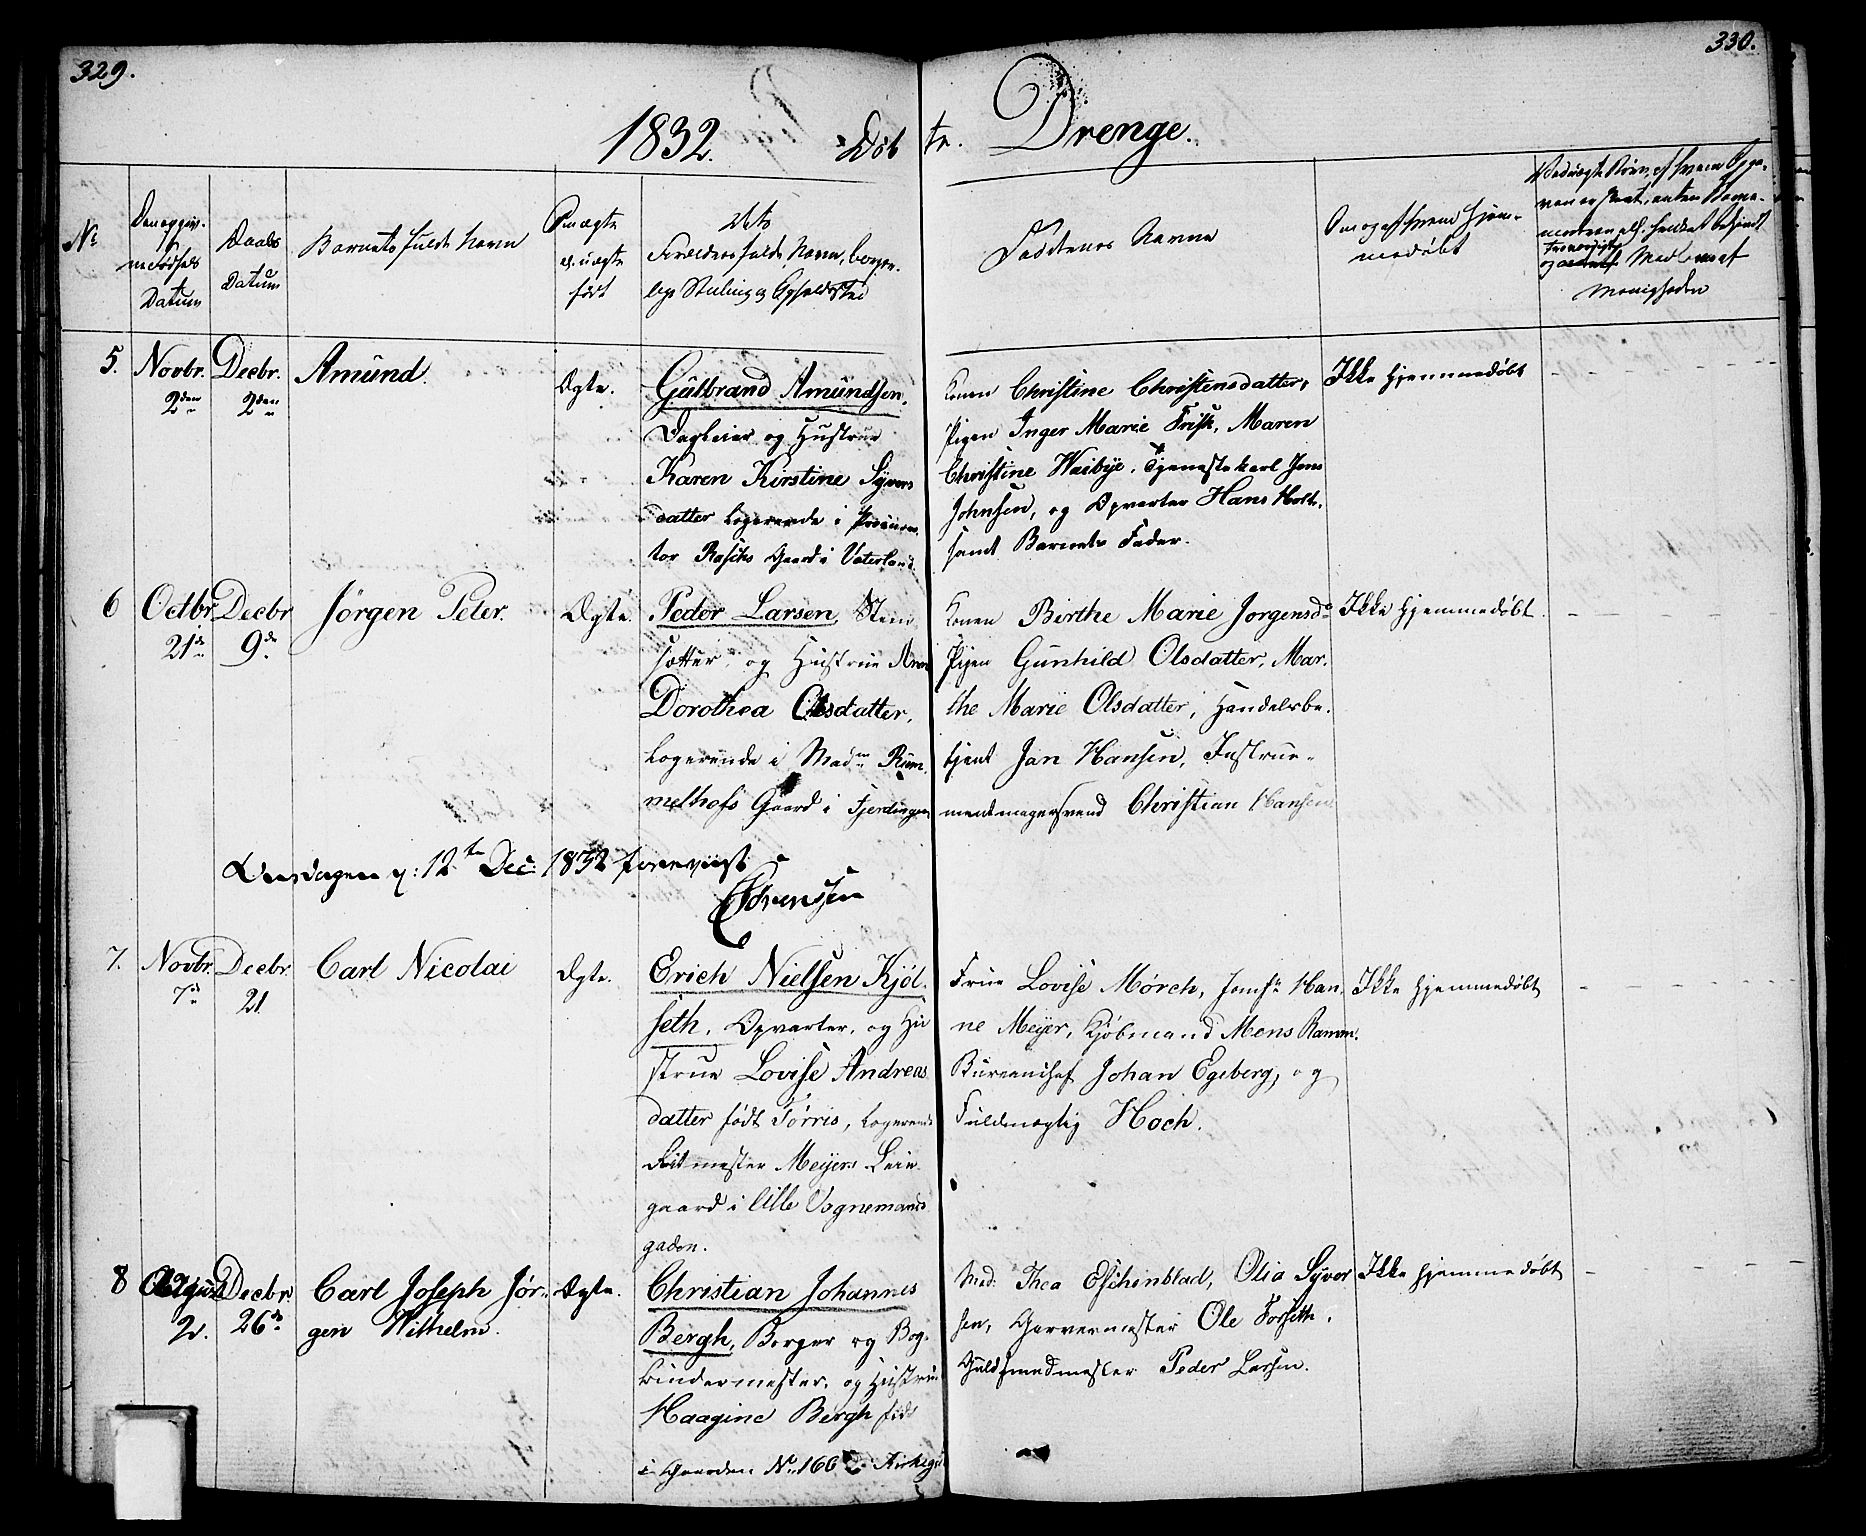 329.
330.
1832. Døb te. Drenge.
No
Den opgiv.
Datum
Daabs
Datum
Barnets fulde Navn
Om ægte
el. uægte
født
Forældres fulde Navn, borger-
lige Stilling og Opholdssted
Faddernes Navne
Om og af hvem hjem-
medøbt
Menigheden
5.
Novbr.
2den
Decbr.
2den
Amund.
Ægte.
Gulbrand Amundsen.
Dagleier og Hustrue
Karen Kirstine Syvers
datter logerende i Procura
tor Raschs Gaard i Vaterland
Konen Christine Christensdatter,
Pigen Inger Marie Frisk, Maren
Christine Waibye. Tjenestekarl Jens
Johnsen, og Opvarter Hans Holt,
samt Barnets Fader.
Ikke hjemmedøbt
6
Octbr.
21de
Decbr
9de
Jørgen Peter.
Ægte.
Peder Larsen, Steen
sætter, og Hustrue Anne
Dorothea Olsdatter,
logerende i Madm Rum
melhofs Gaard i Fjerdingen
Konen Birthe Marie Jorgensdr
Pigen Gunhild Olsdatter, Mar-
the Marie Olsdatter, Handelsbe-
tjent Jan Hansen, Instrue-
mentmagersvend Christian Hansen
Ikke hjemmedøbt
Onsdagen d: 12te Dec: 1832 foreviist
Sørenssen
7.
Novbr.
7de
Decbr.
21
Carl Nicolai
Ægte.
Erich Nielsen Kjøl-
seth, Opvarter, og Hu
strue Lovise Andreas
datter født Tørris, logerende
Ritmester Meyers Leie-
gaard i lille Vognemands
gaden.
Frue Lovise Mørch, Jomfr Han
ne Meyer, Kjøbmand Mons Ramm.
Bureauchef Johan Egeberg, og
Fuldmægtig Hoch.
Ikke hjemmedøbt
8
August
2.
Decbr.
26de
Carl Joseph Jør-
gen Wilhelm.
Ægte.
Christian Johannes
Bergh, Borger og Bog-
bindermester, og Hustrue
Haagine Bergh født
i Gaarden No 166
Mad: Thea Eschenblad, Olia Syver
sen, Garvermester Ole Forseth,
Guldsmedmester Peder Larsen.
Ikke hjemmedøbt